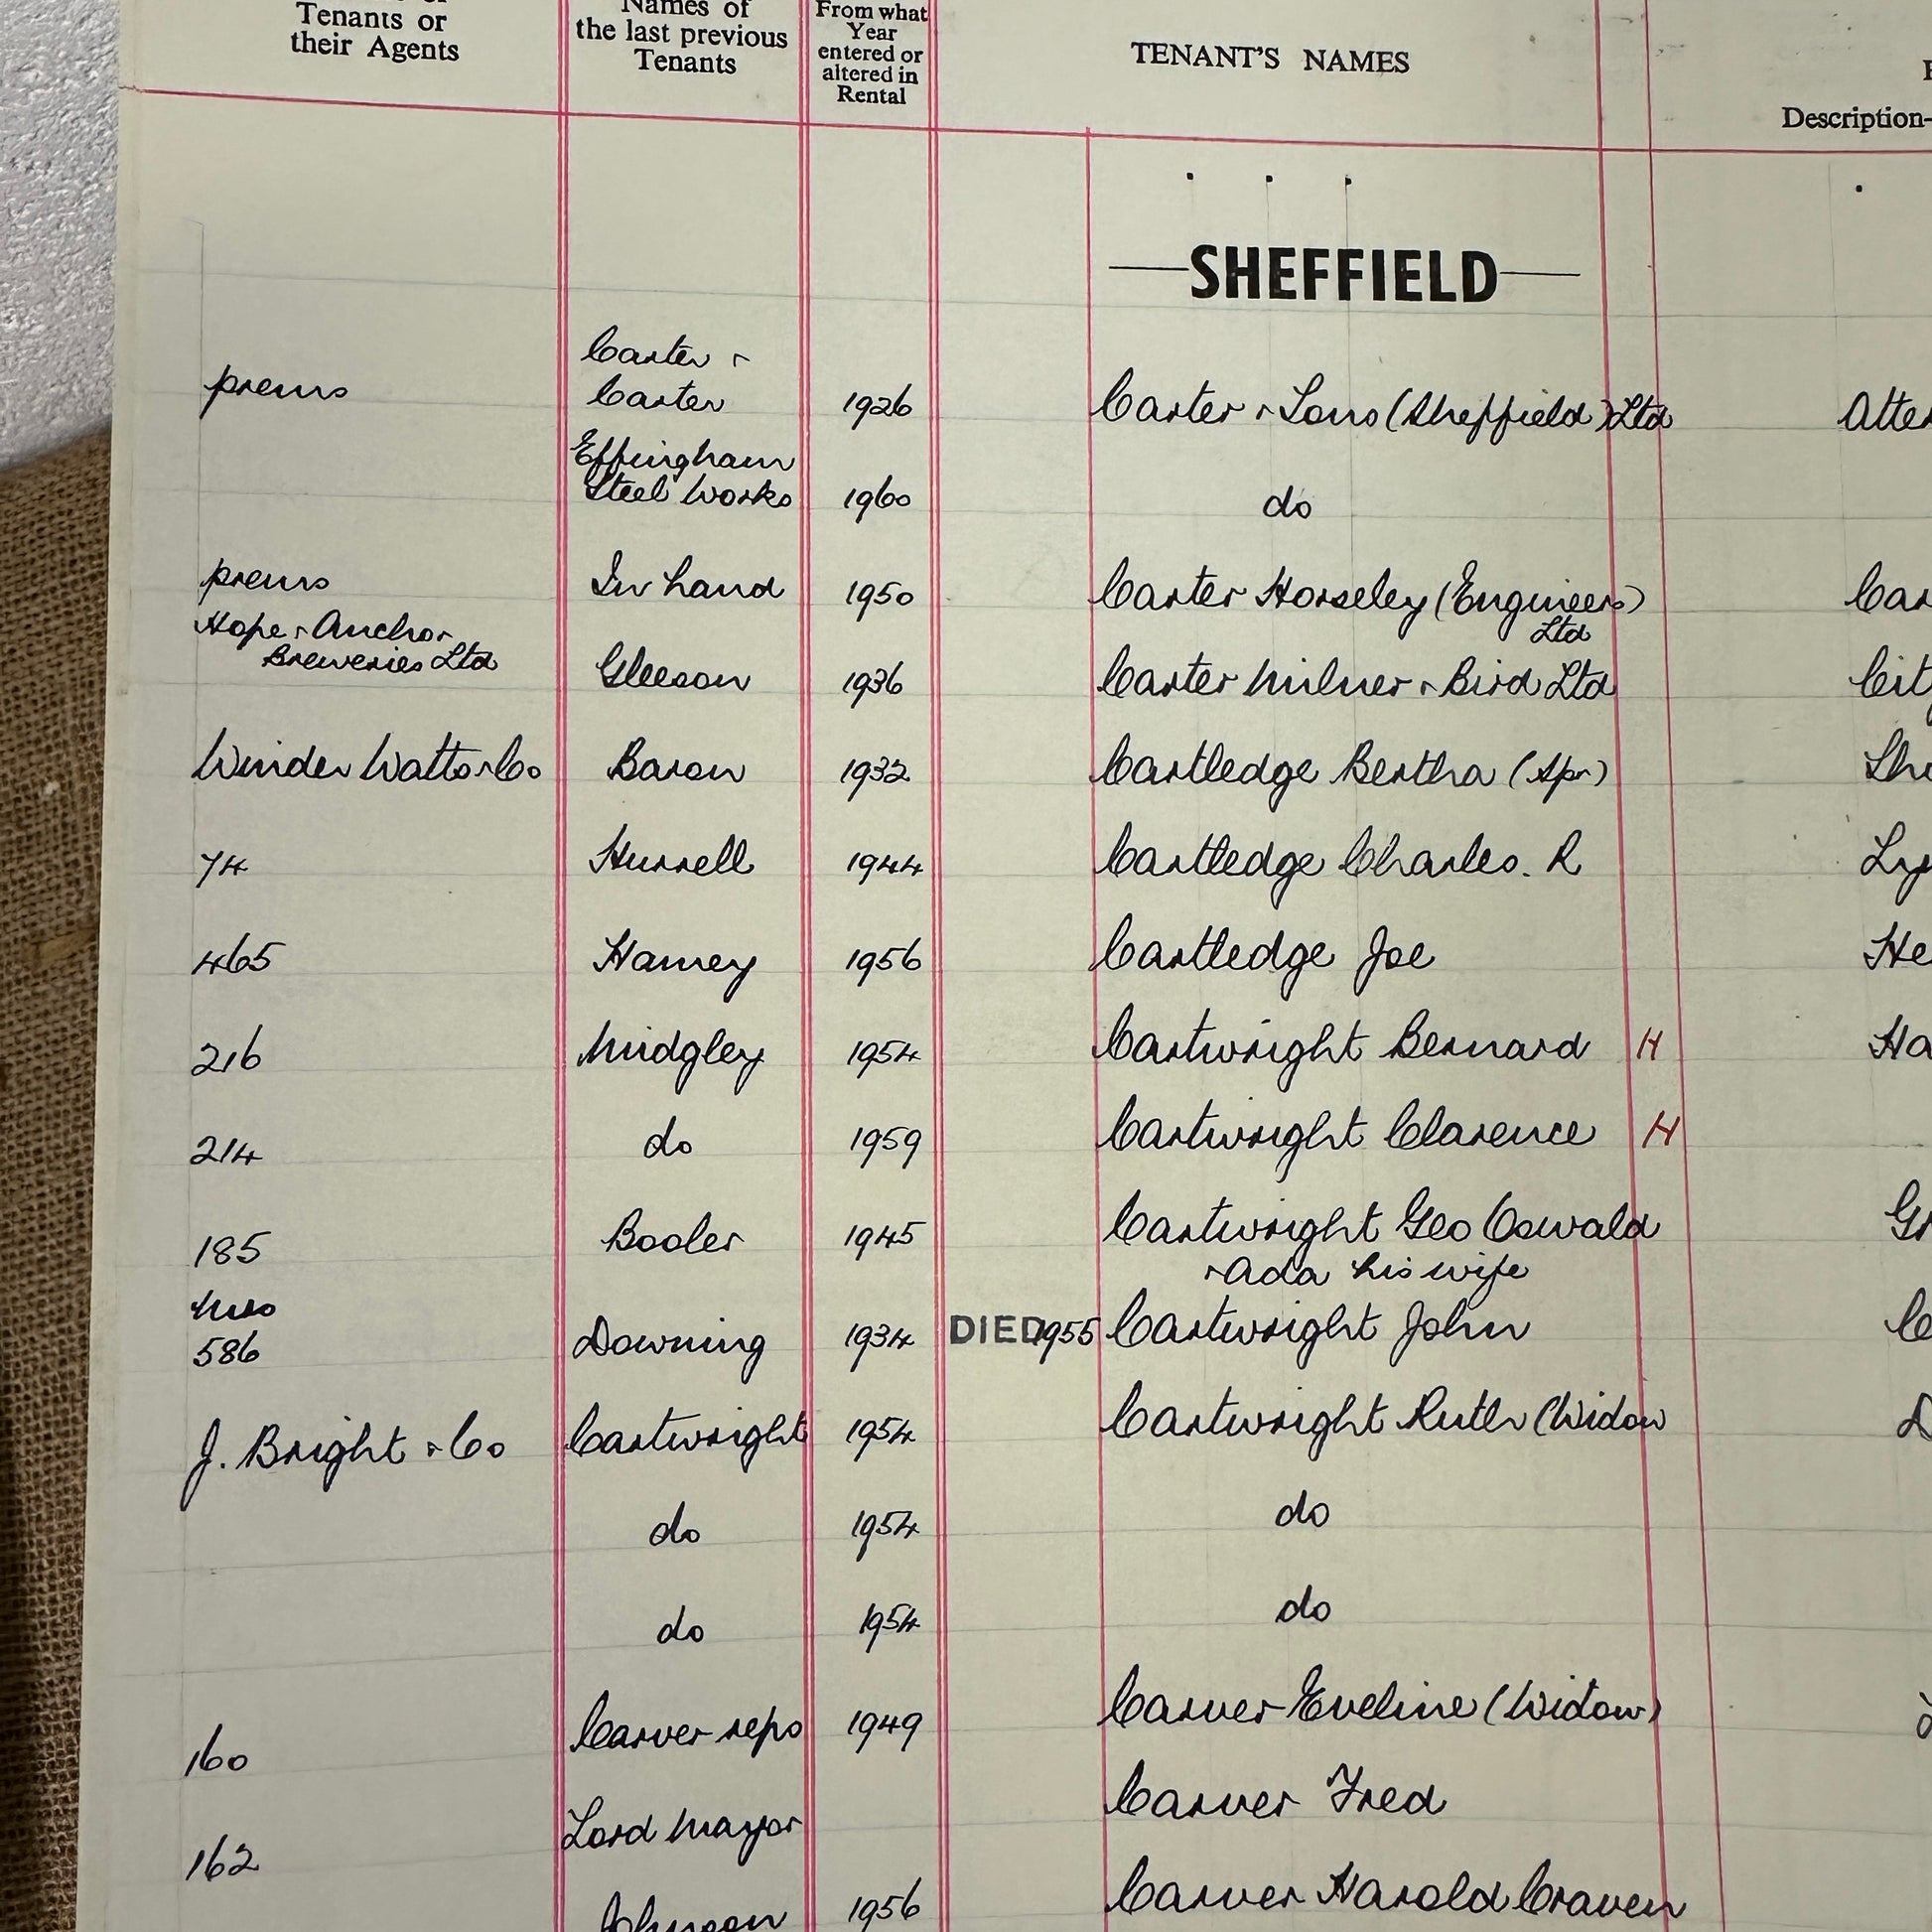 Tenants or
their Agents
Names of
the last previous
Tenants
From what
Year
entered or
altered in
Rental
TENANT'S NAMES
Description-
SHEFFIELD
prems
Carter &
Carter
1926
Carter & Sons (Sheffield) Ltd
Effingham
Steel Works
1960
do
prems
In hand
1950
Carter Horseley (Engineers)
Ltd
Hope & Anchor
Breweries Ltd
Gleeson
1936
Carter Milner & Bird Ltd
Winder Watts & Co
Baron
1932
Cartledge Bertha (Spr)
74
Hurrell
1944
Cartledge Charles. R
465
Harney
1956
Cartledge Joe
216
Midgley
1954
Cartwright Bernard H
214
do
1959
Cartwright Clarence H
185
Booler
1945
Cartwright Geo Oswald
& Ada his wife
Mrs
586
Downing
1934
DIED 1955
Cartwright John
J. Bright & Co
Cartwright
1954
Cartwright Ruth (Widow
do
1954
do
do
1954
do
160
Carver reps
1949
Carver Eveline (Widow)
162
Lord Mayor
Carver Fred
Johnson
1956
Carver Harold Craven